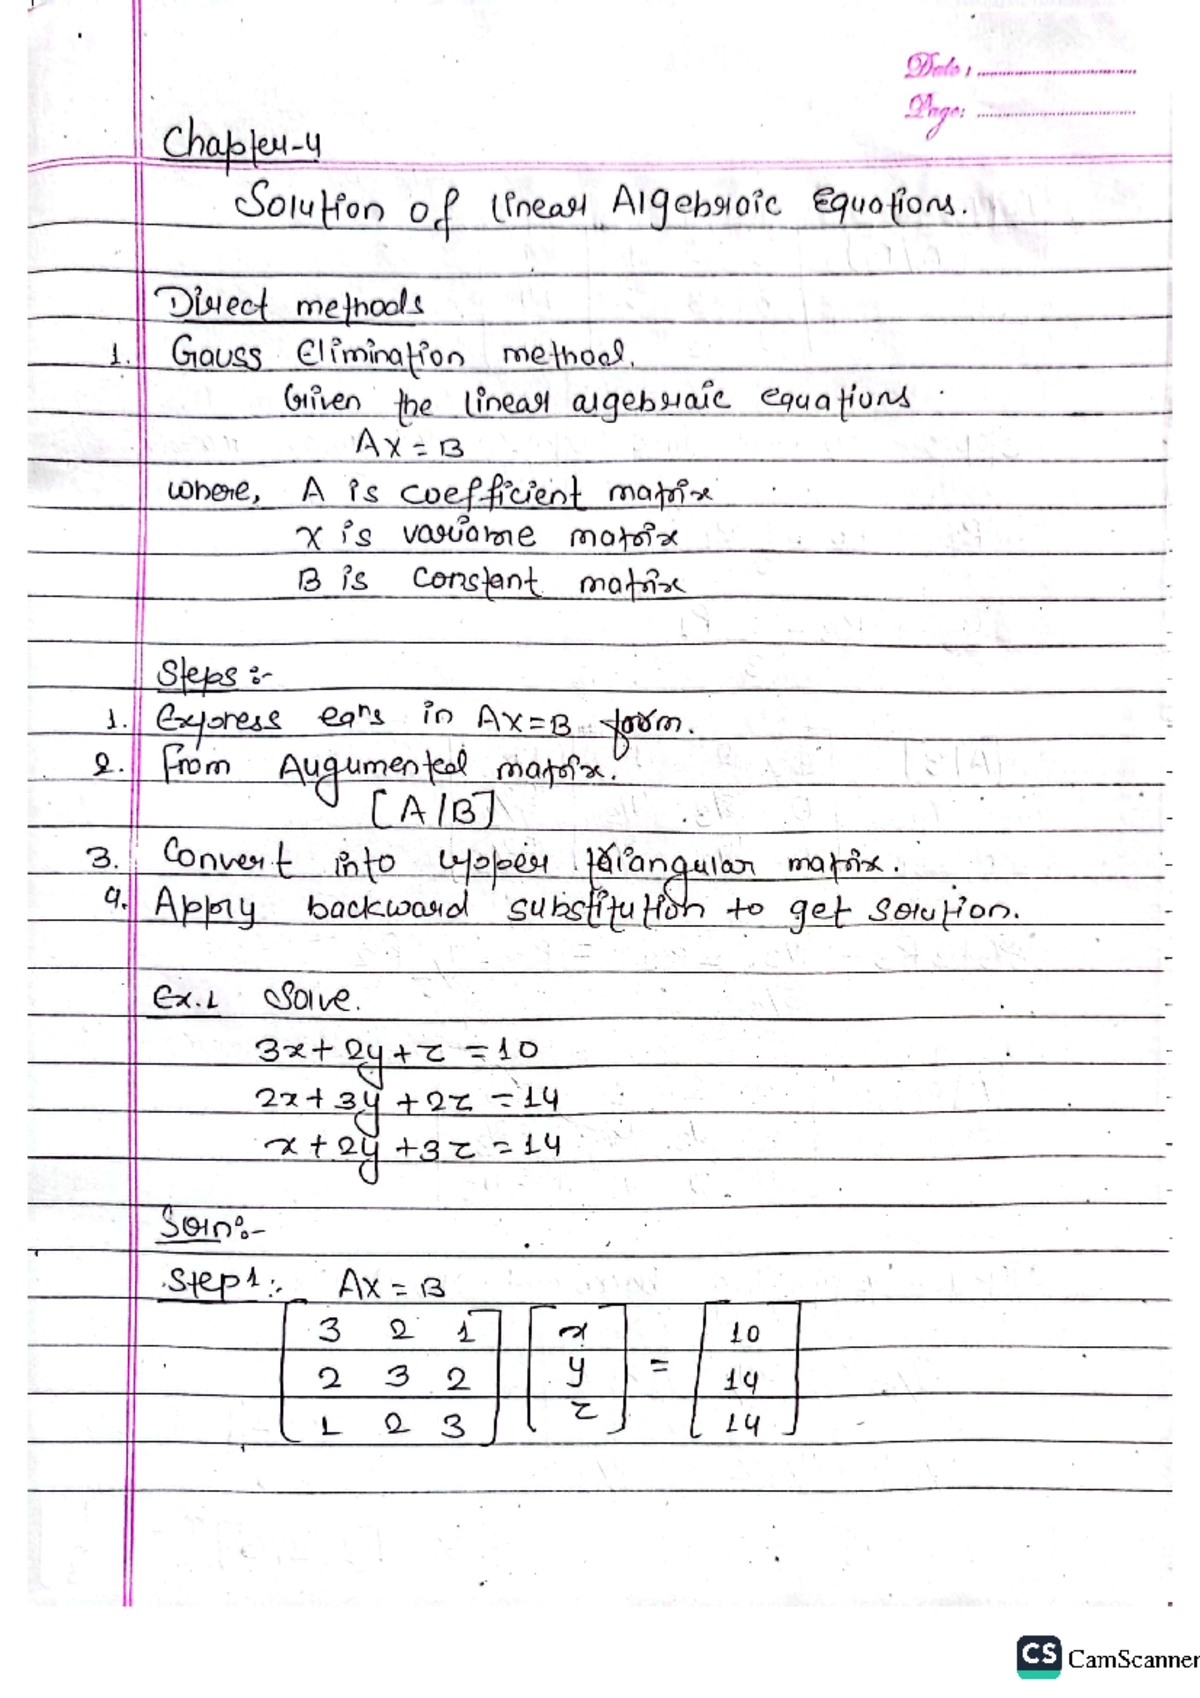 Date:
Page:
Chapter-4
Solution of linear Algebraic Equations.
Direct methods
1. Gauss Elimination method.
Given the linear algebraic equations
AX = B
where, A is coefficient matrix
X is variable matrix
B is constant matrix
Steps :-
1. Express eqns in AX=B form.
2. From Augumented matrix.
[A/B]
3. Convert into upper triangular matrix.
4. Apply backward substitution to get solution.
Ex.1 Solve.
3x + 2y + z = 10
2x + 3y + 2z = 14
x + 2y + 3z = 14
Soln:-
Step 1:- AX = B
[3 2 1] [x] [10]
[2 3 2] [y] = [14]
[1 2 3] [z] [14]
CS CamScanner